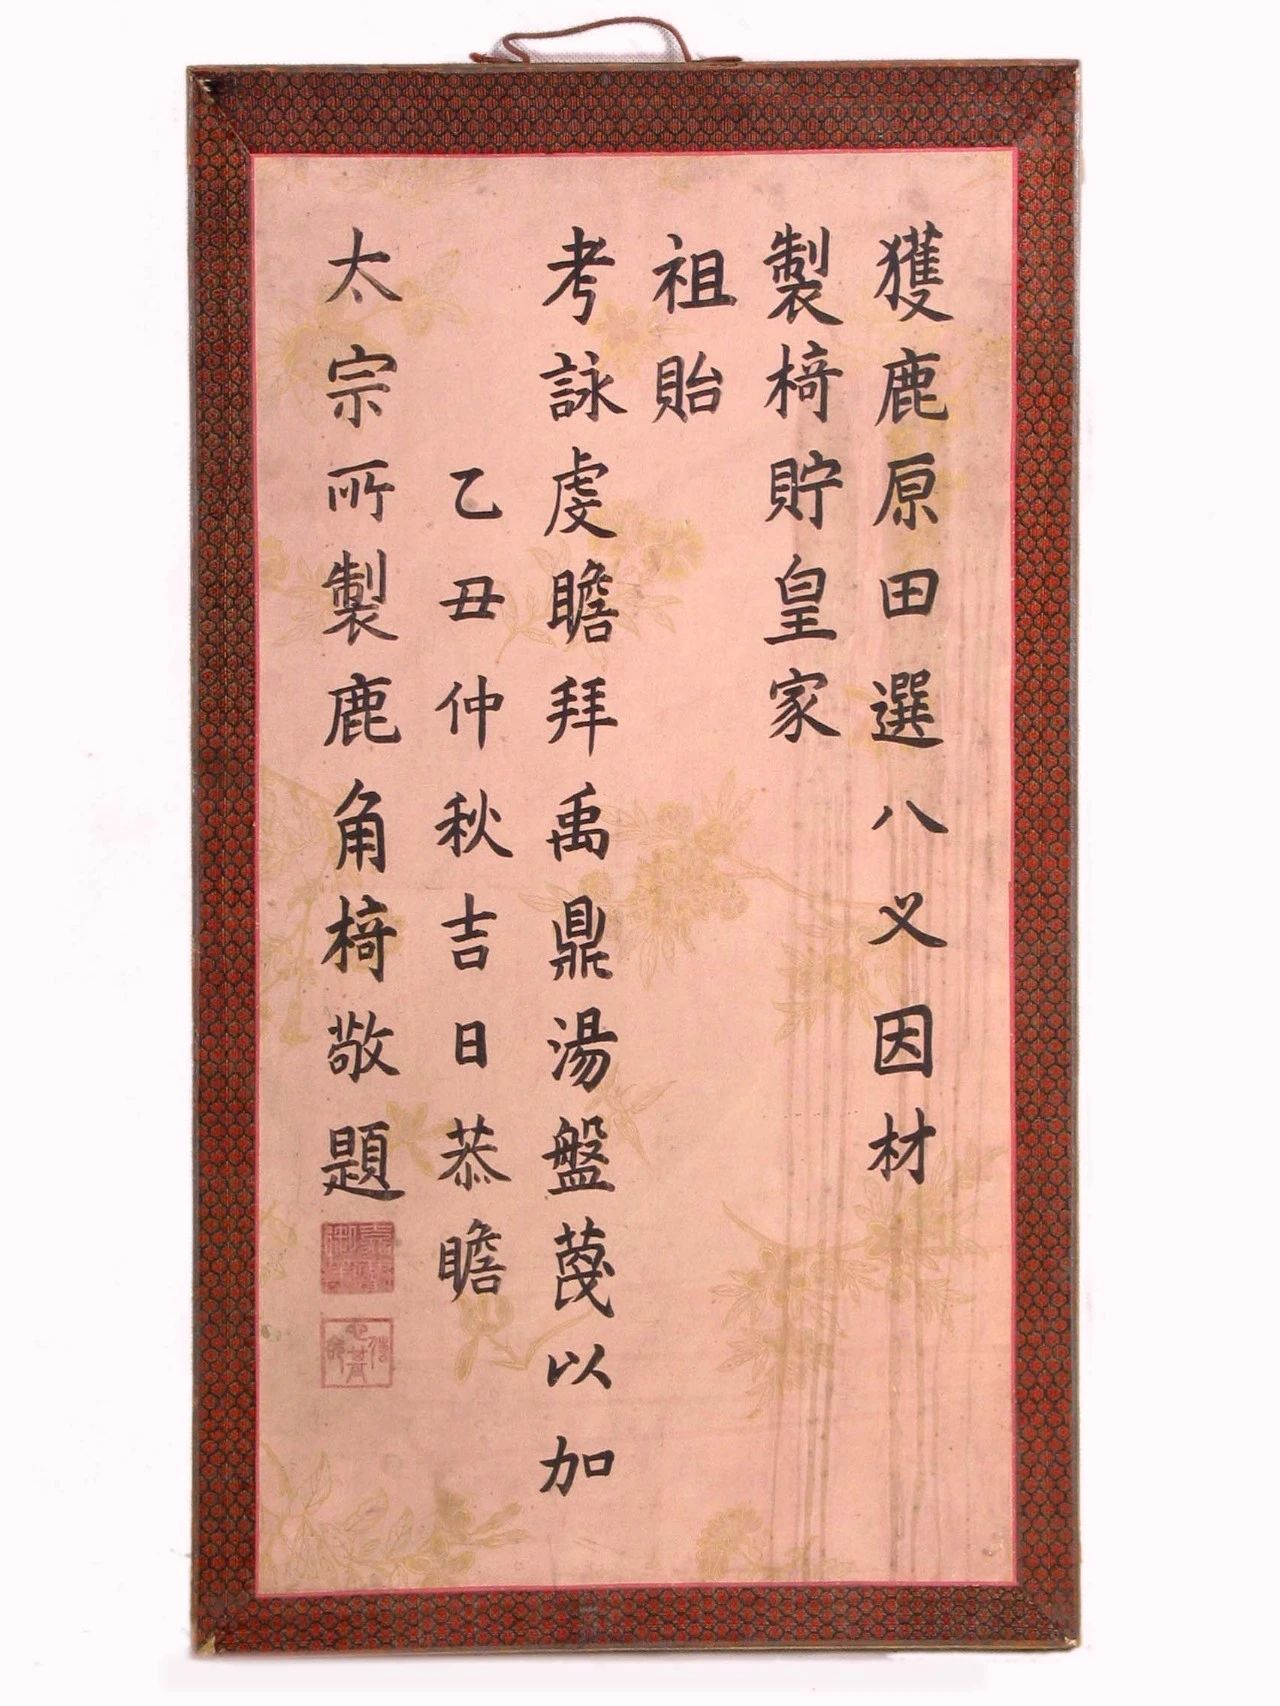 獲鹿原田選八义因材
製椅貯皇家
祖貽
考詠虔瞻拜禹鼎湯盤蔑以加
乙丑仲秋吉日恭瞻
太宗所製鹿角椅敬題